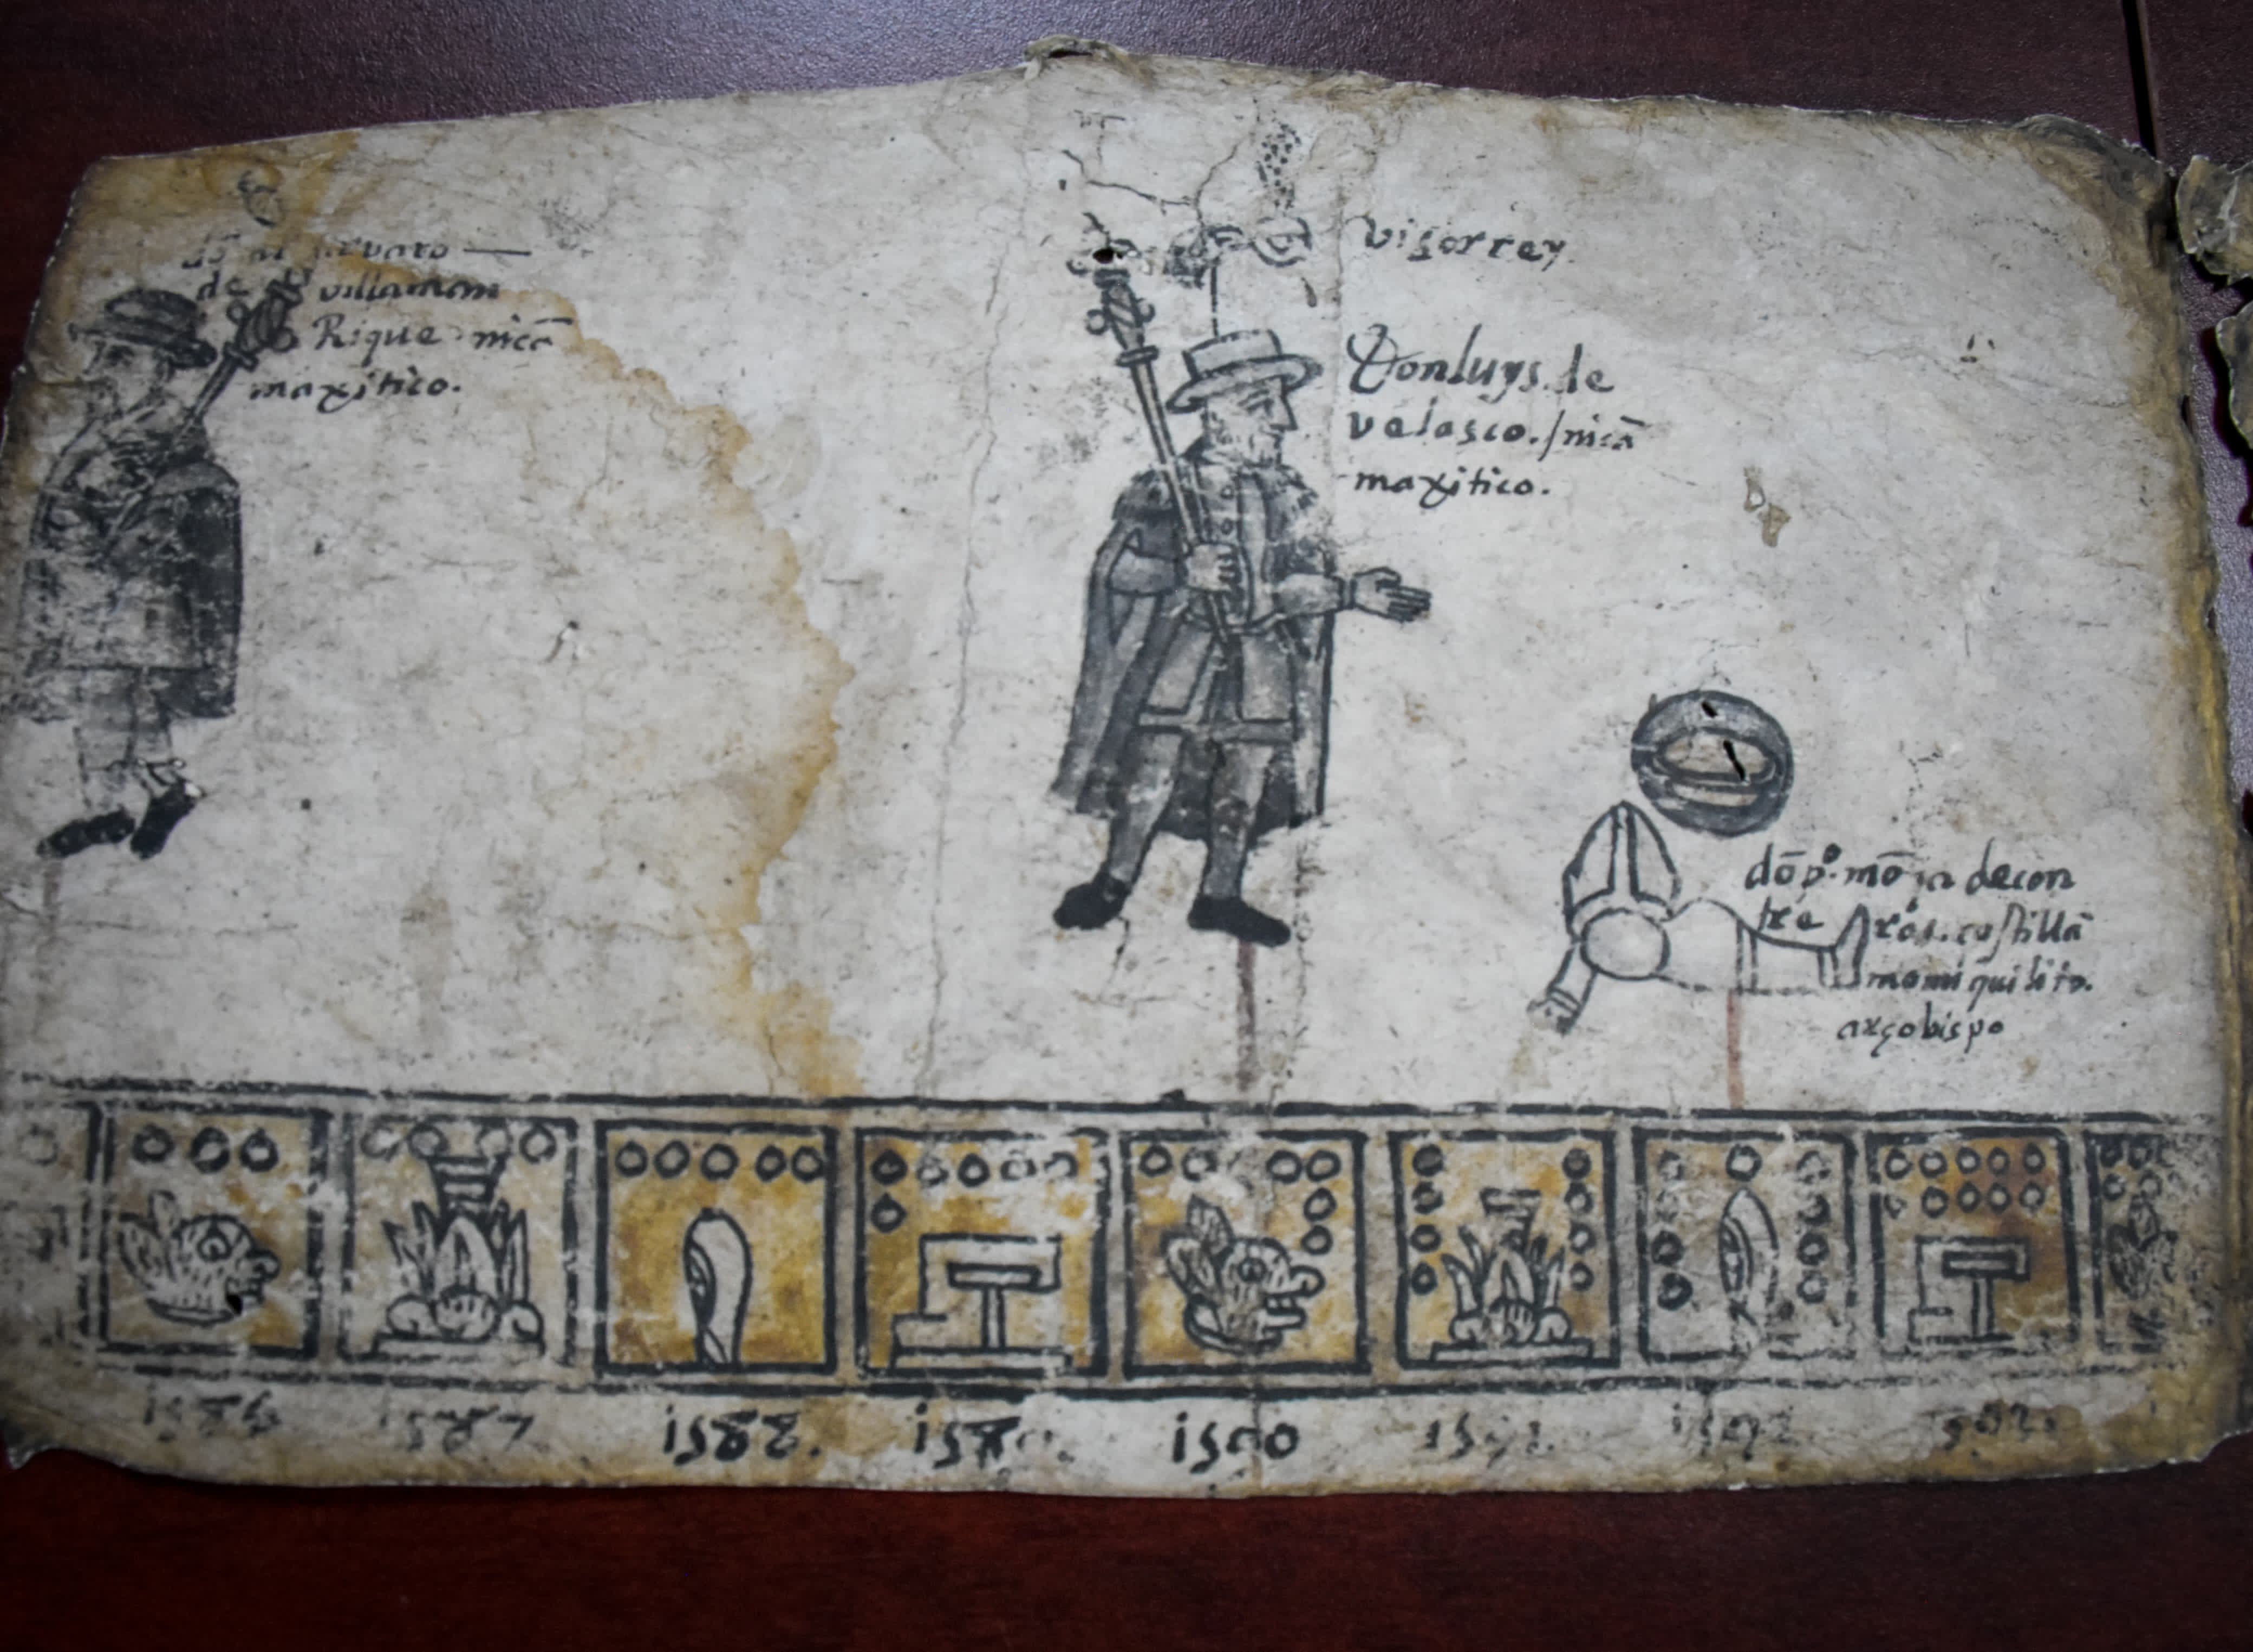 de villaman
Rique nicā
maxitico.
visorrey
Donluys de
velasco./nicā
maxitico.
dō po. mō ya decon
tre ros. castillā
momiquilito.
arçobispo
1586
1587
1588.
1589.
1590
1591.
1592